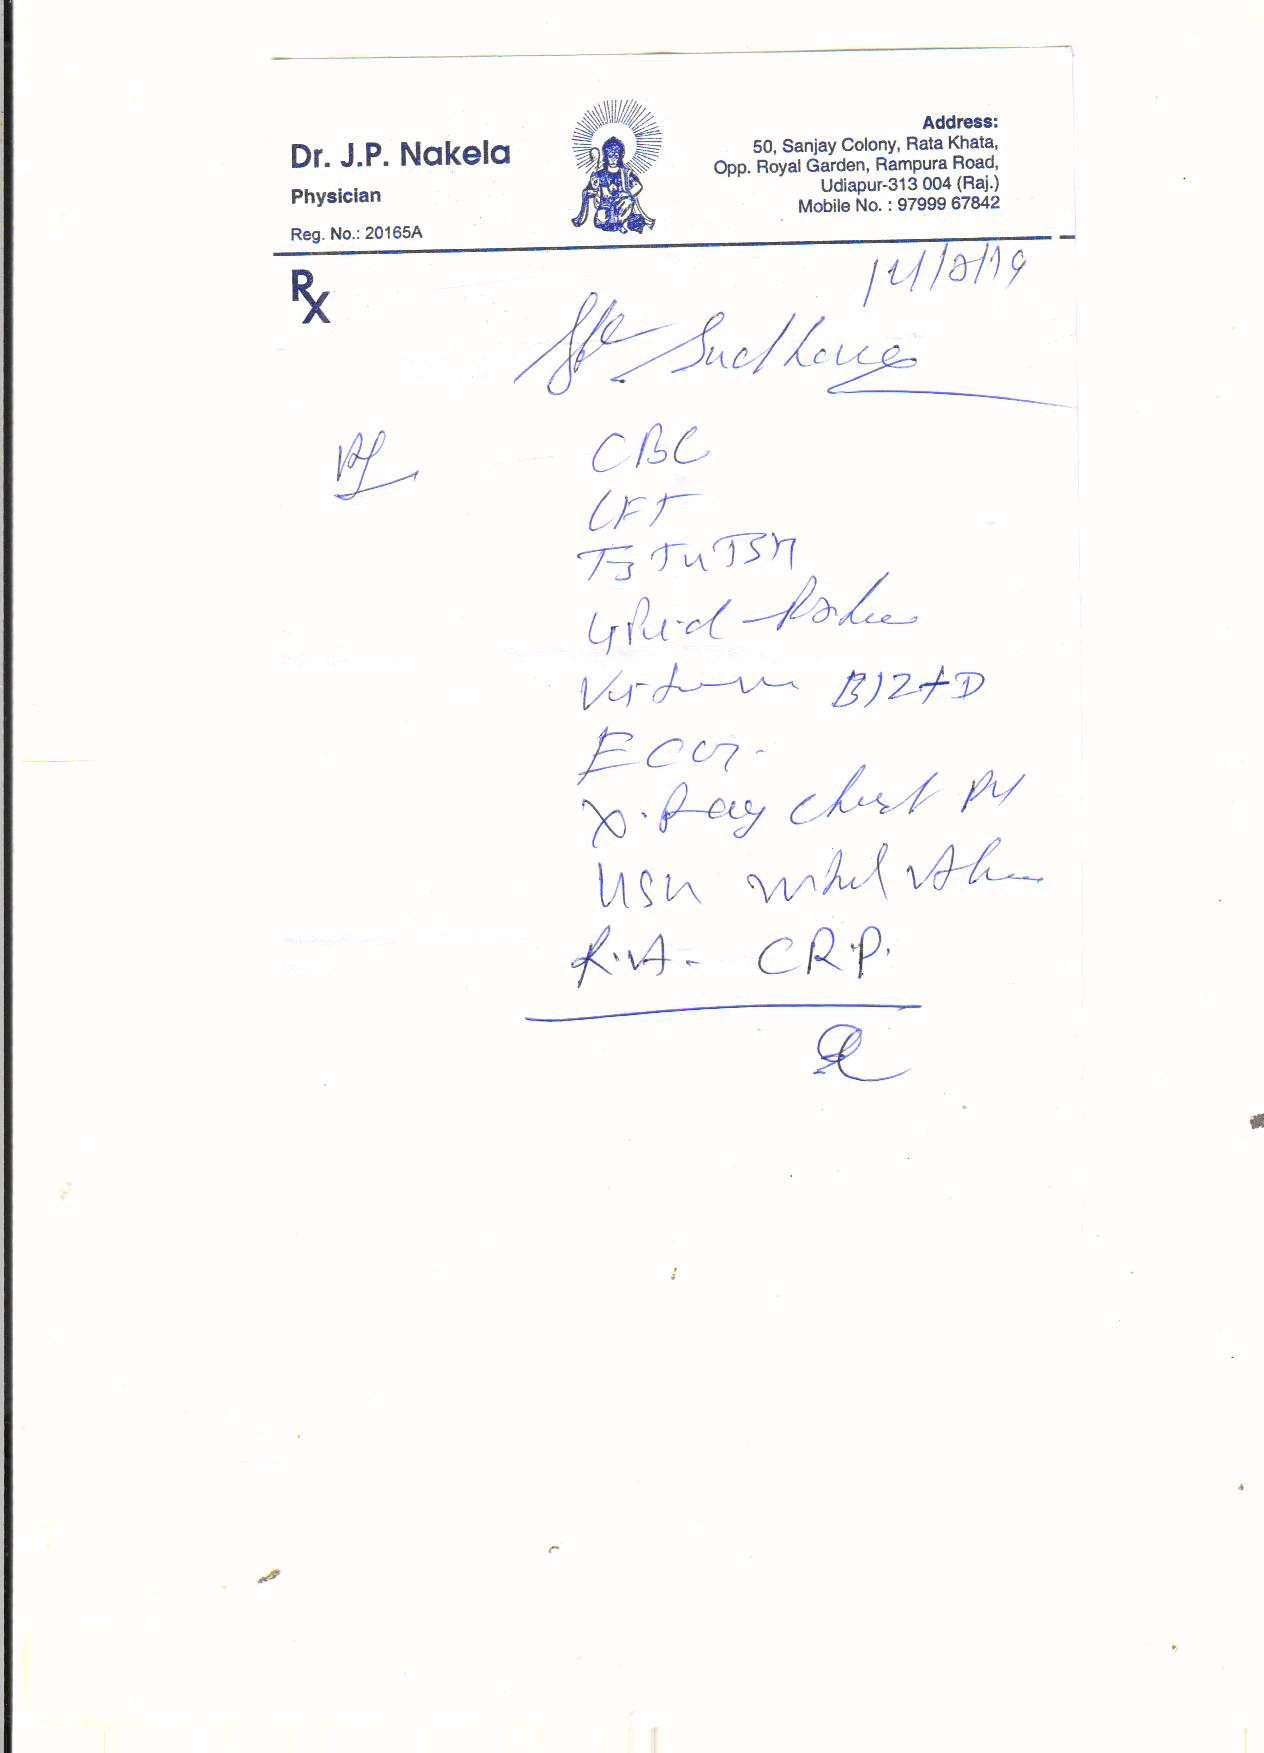 Dr. J.P. Nakela
Physician
Reg. No.: 20165A
Address:
50, Sanjay Colony, Rata Khata,
Opp. Royal Garden, Rampura Road,
Udiapur-313 004 (Raj.)
Mobile No. : 97999 67842
Rx
CBC
LFT
T3 T4 TSH
Lipid
Vitamin B12 + D
ECG.
X.Ray Chest PA
USG Whole Abdomen
R.A. CRP.